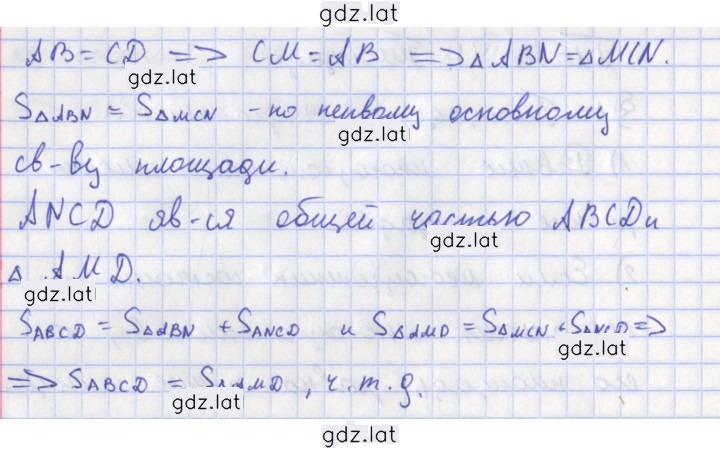 gdz.lat
AB = CD => CM = AB => △ABN = △MCN.
gdz.lat
S△ABN = S△MCN - по первому основному
gdz.lat
св-ву площади.
ANCD яв-ся общей частью ABCD и
gdz.lat
△ AMD.
gdz.lat
SABCD = S△ABN + SANCD и S△AMD = S△MCN + SANCD =>
gdz.lat
=> SABCD = S△AMD, ч.т.д.
gdz.lat
gdz.lat